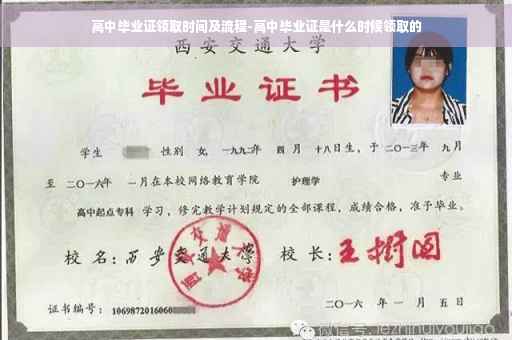 高中毕业证领取时间及流程-高中毕业证是什么时候领取的
西安交通大学
毕业证书
学生 性别 女, 一九九二年 四 月 十八日生, 于二〇一三年 九月
至 二〇一六年 一月在本校网络教育学院 护理学 专业
高中起点专科 学习, 修完教学计划规定的全部课程, 成绩合格, 准予毕业。
校 名: 西安交通大学 校 长: 王树国
西安交通大学
证书编号: 1069872016060
二〇一六 年 一 月 五 日
微信号: jezhinuiyoujiao